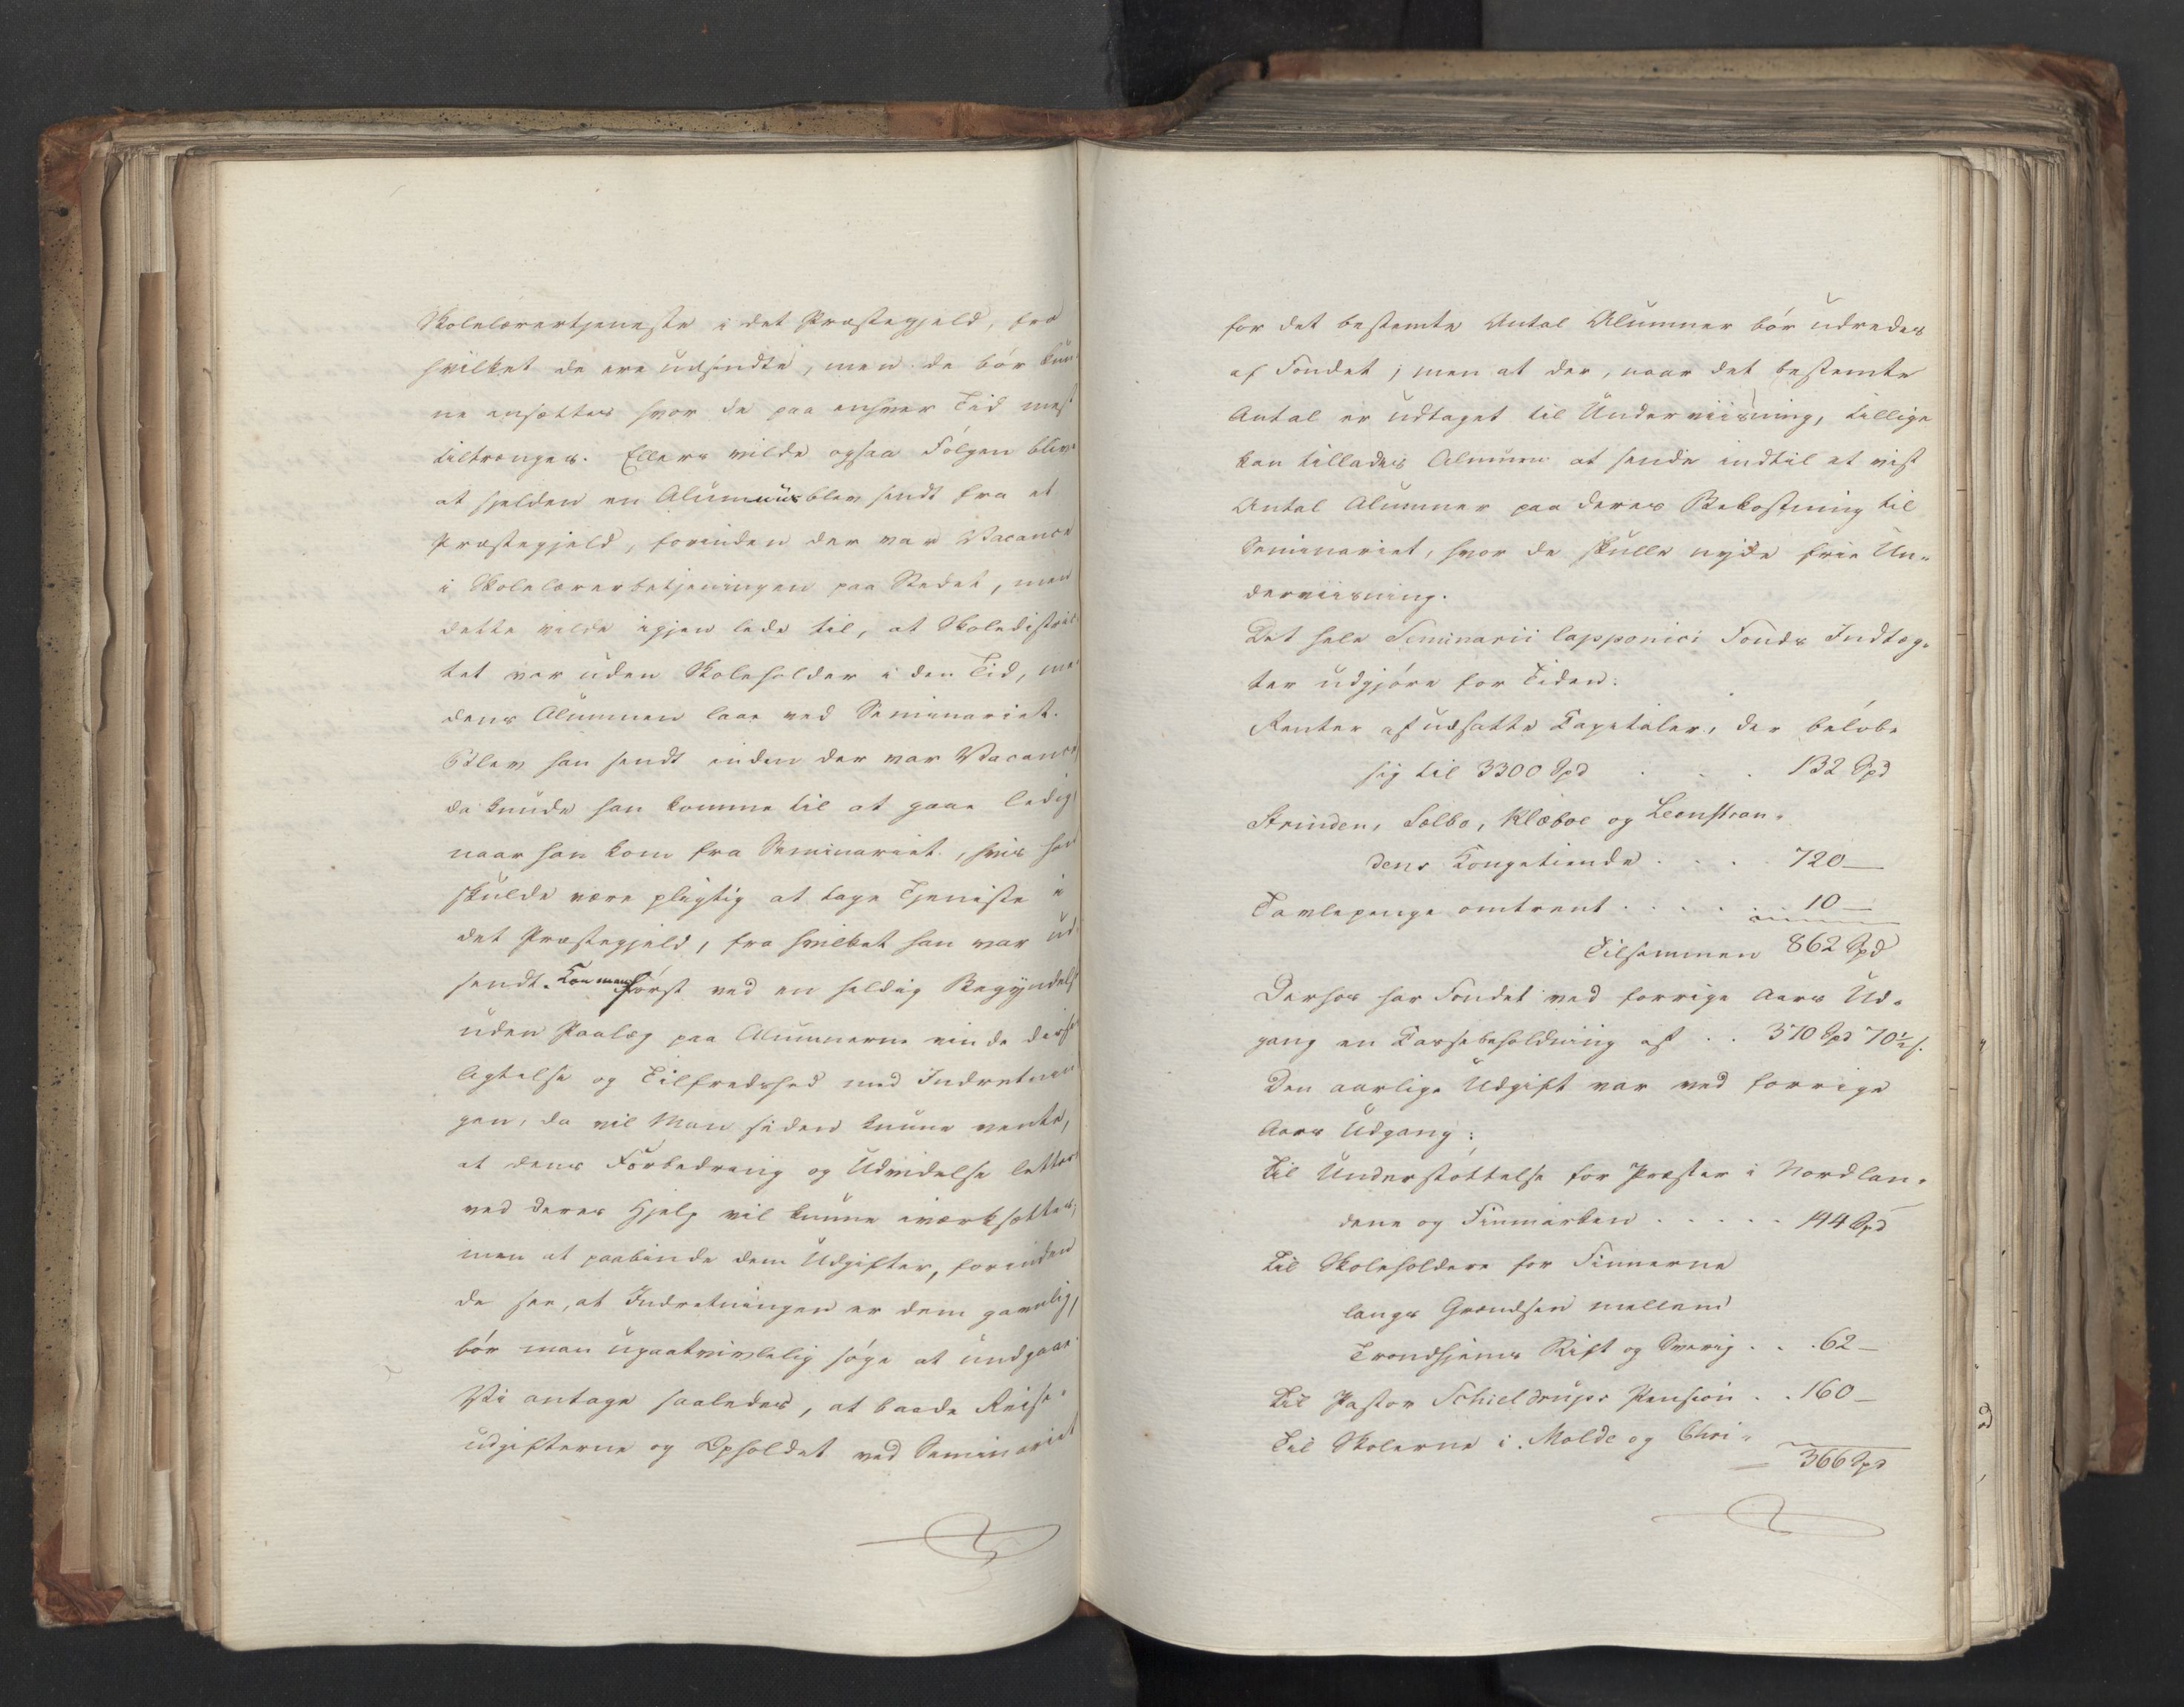 Skolelærertjeneste i det Præstegjeld, fra
hvilket de ere udsendte, men de bør kun-
ne ansættes hvor de paa enhver Tid mest
tiltrænges. Ellers vilde ogsaa Følgen blive
at sjelden en Alumnus blev sendt fra et
Præstegjeld, forinden der var Vacance
i Skolelærerbetjeningen paa Stedet, men
dette vilde igjen lede til, at Skoledistric-
tet var uden Skoleholder i den Tid, me-
dens Alumnen laae ved Seminariet.
Blev han sendt inden der var Vacance,
da kunde han komme til at gaae ledig,
naar han kom fra Seminariet, hvis han
skulde være pligtig at tage Tjeneste i
det Præstegjeld, fra hvilket han var ud-
sendt. Kan man først ved en heldig Begyndelse
uden Paalæg paa Alumnerne vinde disses
Agtelse og Tilfredshed med Indretnin-
gen, da vil Man siden kunne vente,
at dens Forbedring og Udvidelse lettere
ved deres Hjelp vil kunne iværksættes;
men at paabinde dem Udgifter, forinden
de see, at Indretningen er dem gavnlig,
bør man upaatvivlelig søge at undgaae.
Vi antage saaledes, at baade Reise-
udgifterne og Opholdet ved Seminariet
for det bestemte Antal Alumner bør udredes
af Fondet; men at der, naar det bestemte
Antal er udtaget til Underviisning, tillige
kan tillades at sende indtil et vist
Antal Alumner paa deres Bekostning til
Seminariet, hvor de skulle nyde frie Un-
derviisning.
Det hele Seminarii lapponici Fonds Indtæg-
ter udgjøre for Tiden:
Renter af udsatte Kapitaler, der beløbe
sig til 3300 Spd . . . 132 Spd
Strinden, Sælbo, Klæboe og Leenstran-
dens Kongetiende . . . . 720 —
Tavlepenge omtrent . . . . . 10 —
Tilsammen 862 Spd
Derhos har Fondet ved forrige Aars Ud-
gang en Kassebeholdning af . . 370 Spd 70½ s.
Den aarlige Udgift var ved forrige
Aars Udgang:
Til Understøttelse for Præster i Nordlan-
dene og Finmarken . . . . . 144 Spd
Til Skoleholdere for Finnerne
langs Grændsen mellem
Trondhjems Stift og Sverig . . . 62 —
Til Pastor Schieldrups Pension . . 160 —
Til Skolerne i Molde og Chri-
— 366 Spd